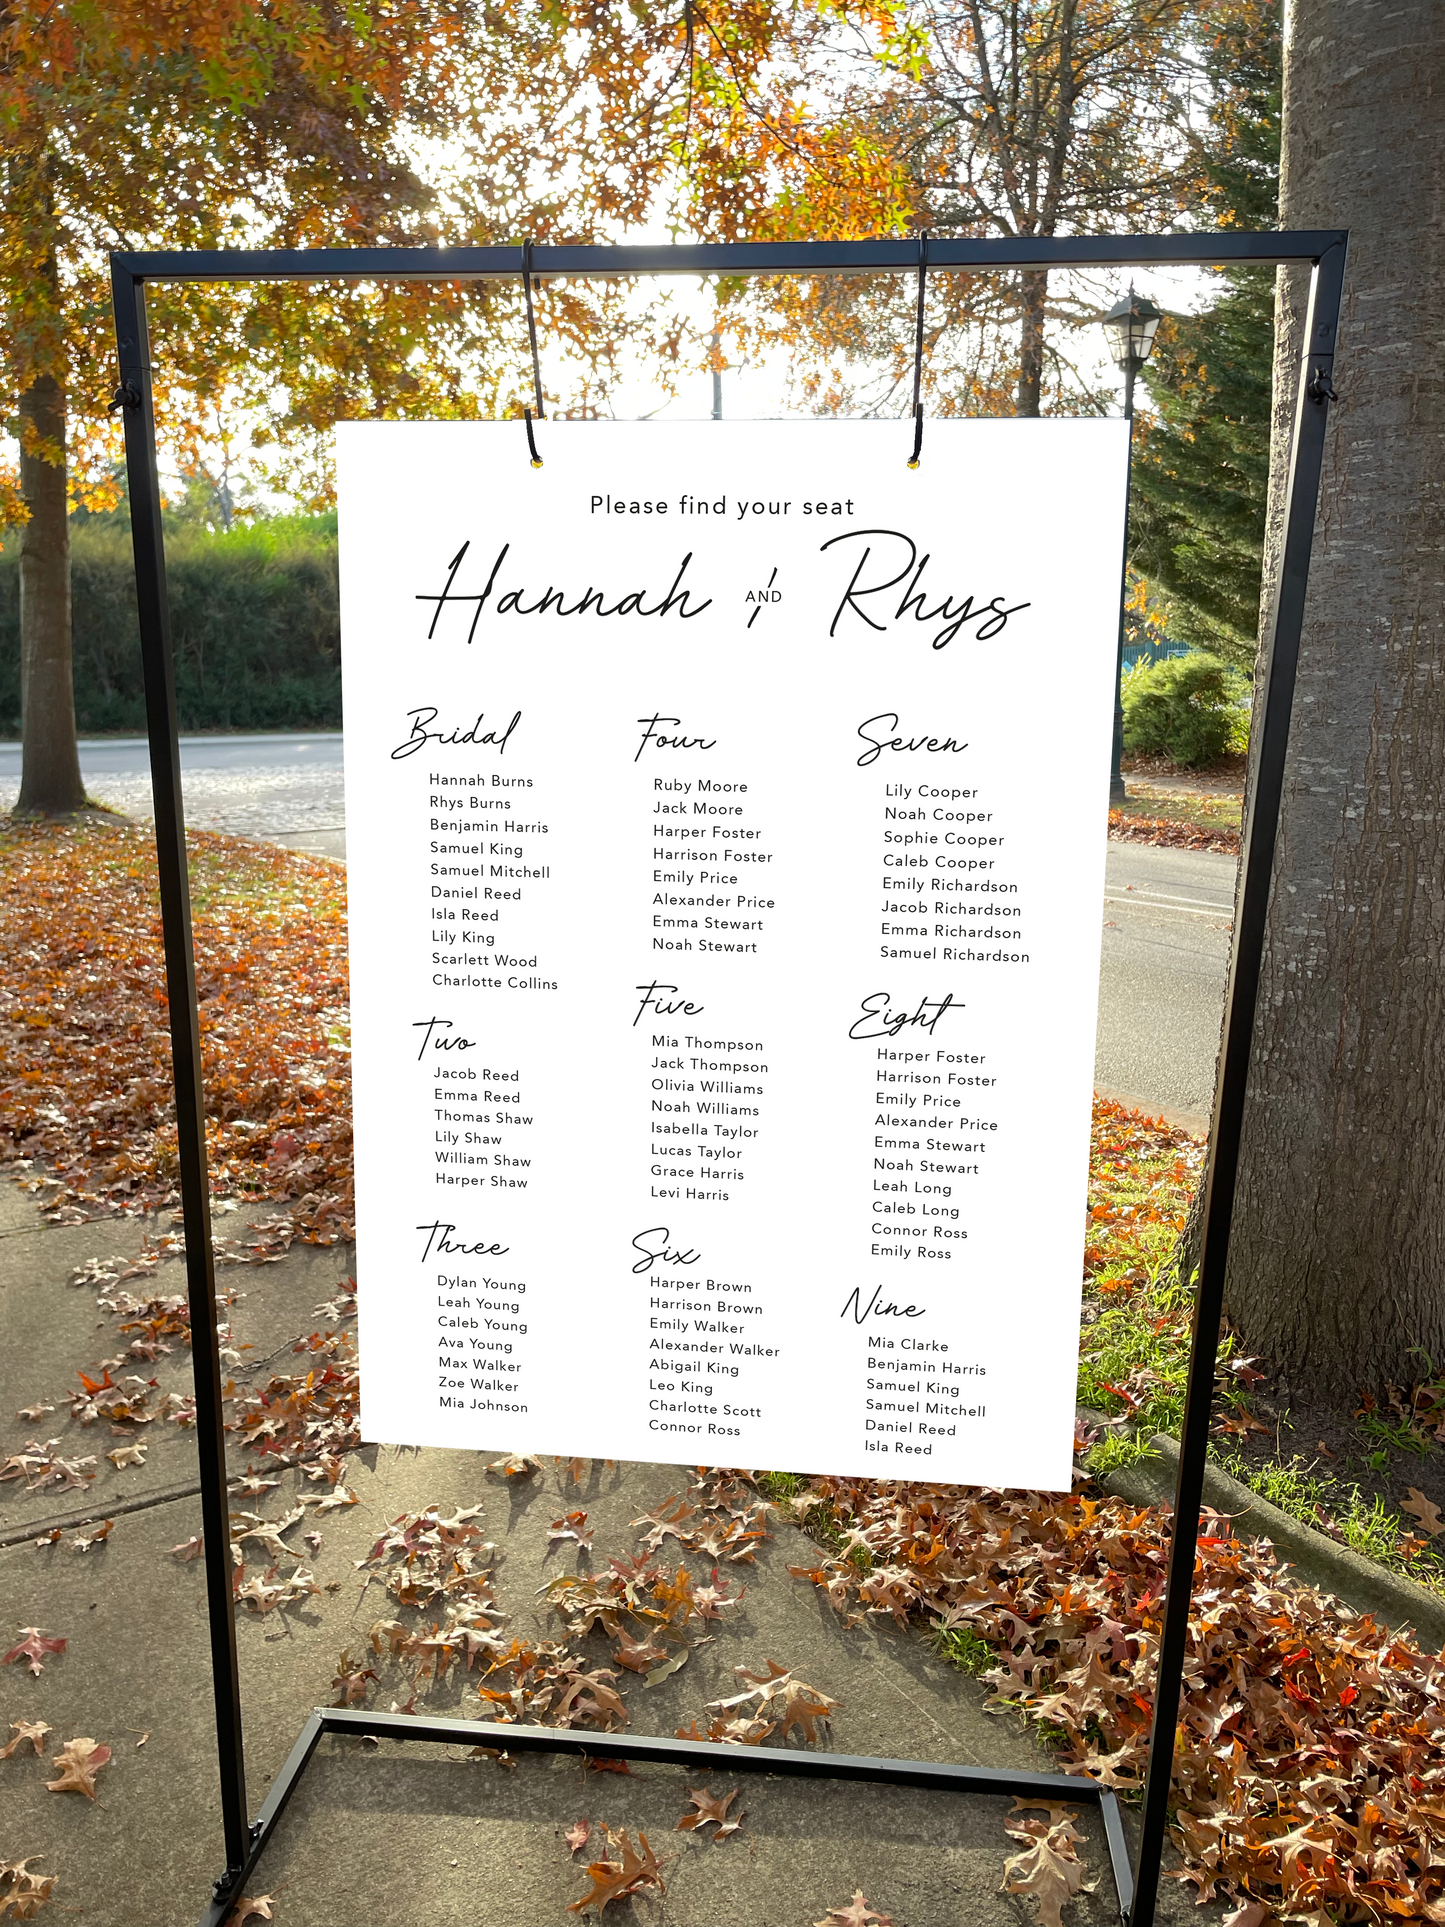 Please find your seat
Hannah AND Rhys
Bridal
Hannah Burns
Rhys Burns
Benjamin Harris
Samuel King
Samuel Mitchell
Daniel Reed
Isla Reed
Lily King
Scarlett Wood
Charlotte Collins
Two
Jacob Reed
Emma Reed
Thomas Shaw
Lily Shaw
William Shaw
Harper Shaw
Three
Dylan Young
Leah Young
Caleb Young
Ava Young
Max Walker
Zoe Walker
Mia Johnson
Four
Ruby Moore
Jack Moore
Harper Foster
Harrison Foster
Emily Price
Alexander Price
Emma Stewart
Noah Stewart
Five
Mia Thompson
Jack Thompson
Olivia Williams
Noah Williams
Isabella Taylor
Lucas Taylor
Grace Harris
Levi Harris
Six
Harper Brown
Harrison Brown
Emily Walker
Alexander Walker
Abigail King
Leo King
Charlotte Scott
Connor Ross
Seven
Lily Cooper
Noah Cooper
Sophie Cooper
Caleb Cooper
Emily Richardson
Jacob Richardson
Emma Richardson
Samuel Richardson
Eight
Harper Foster
Harrison Foster
Emily Price
Alexander Price
Emma Stewart
Noah Stewart
Leah Long
Caleb Long
Connor Ross
Emily Ross
Nine
Mia Clarke
Benjamin Harris
Samuel King
Samuel Mitchell
Daniel Reed
Isla Reed